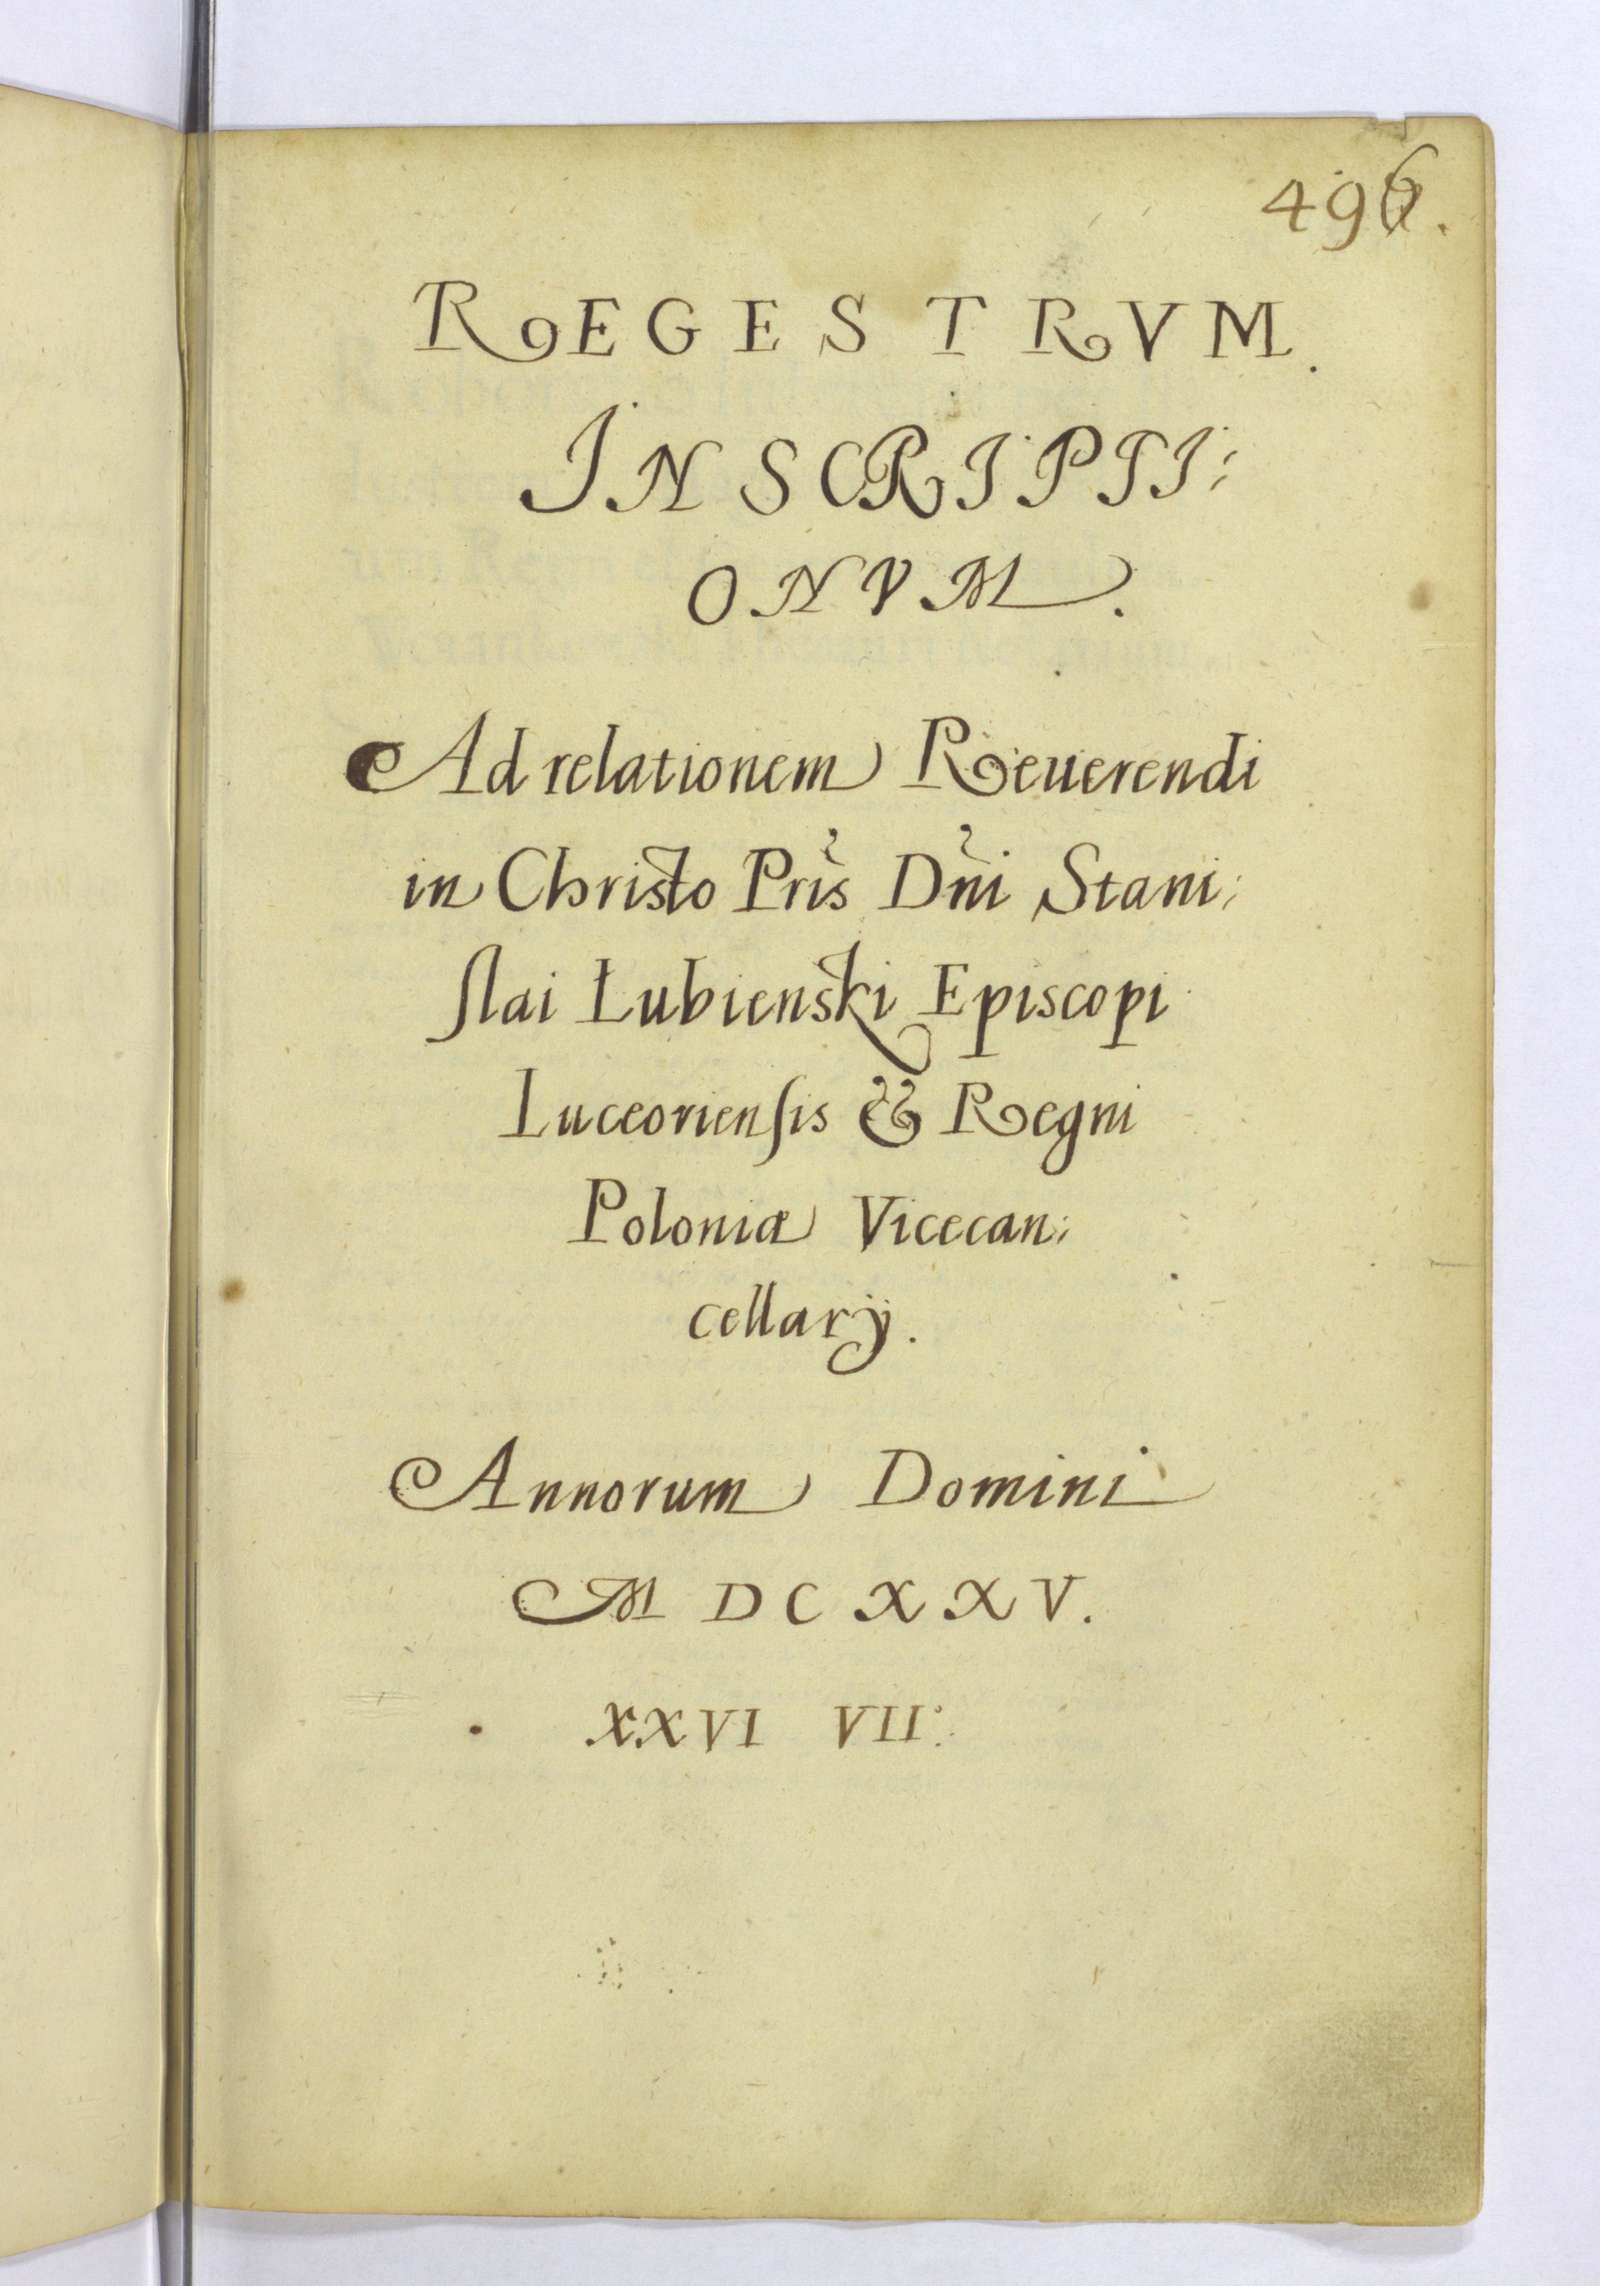 496.
REGESTRVM.
INSCRIPTI:
ONVM.
Ad relationem Reuerendi
in Christo Pris Dni Stani:
slai Łubienski Episcopi
Luceoriensis & Regni
Poloniæ Vicecan:
cellarÿ.
Annorum Domini
M DC XXV.
XXVI VII: